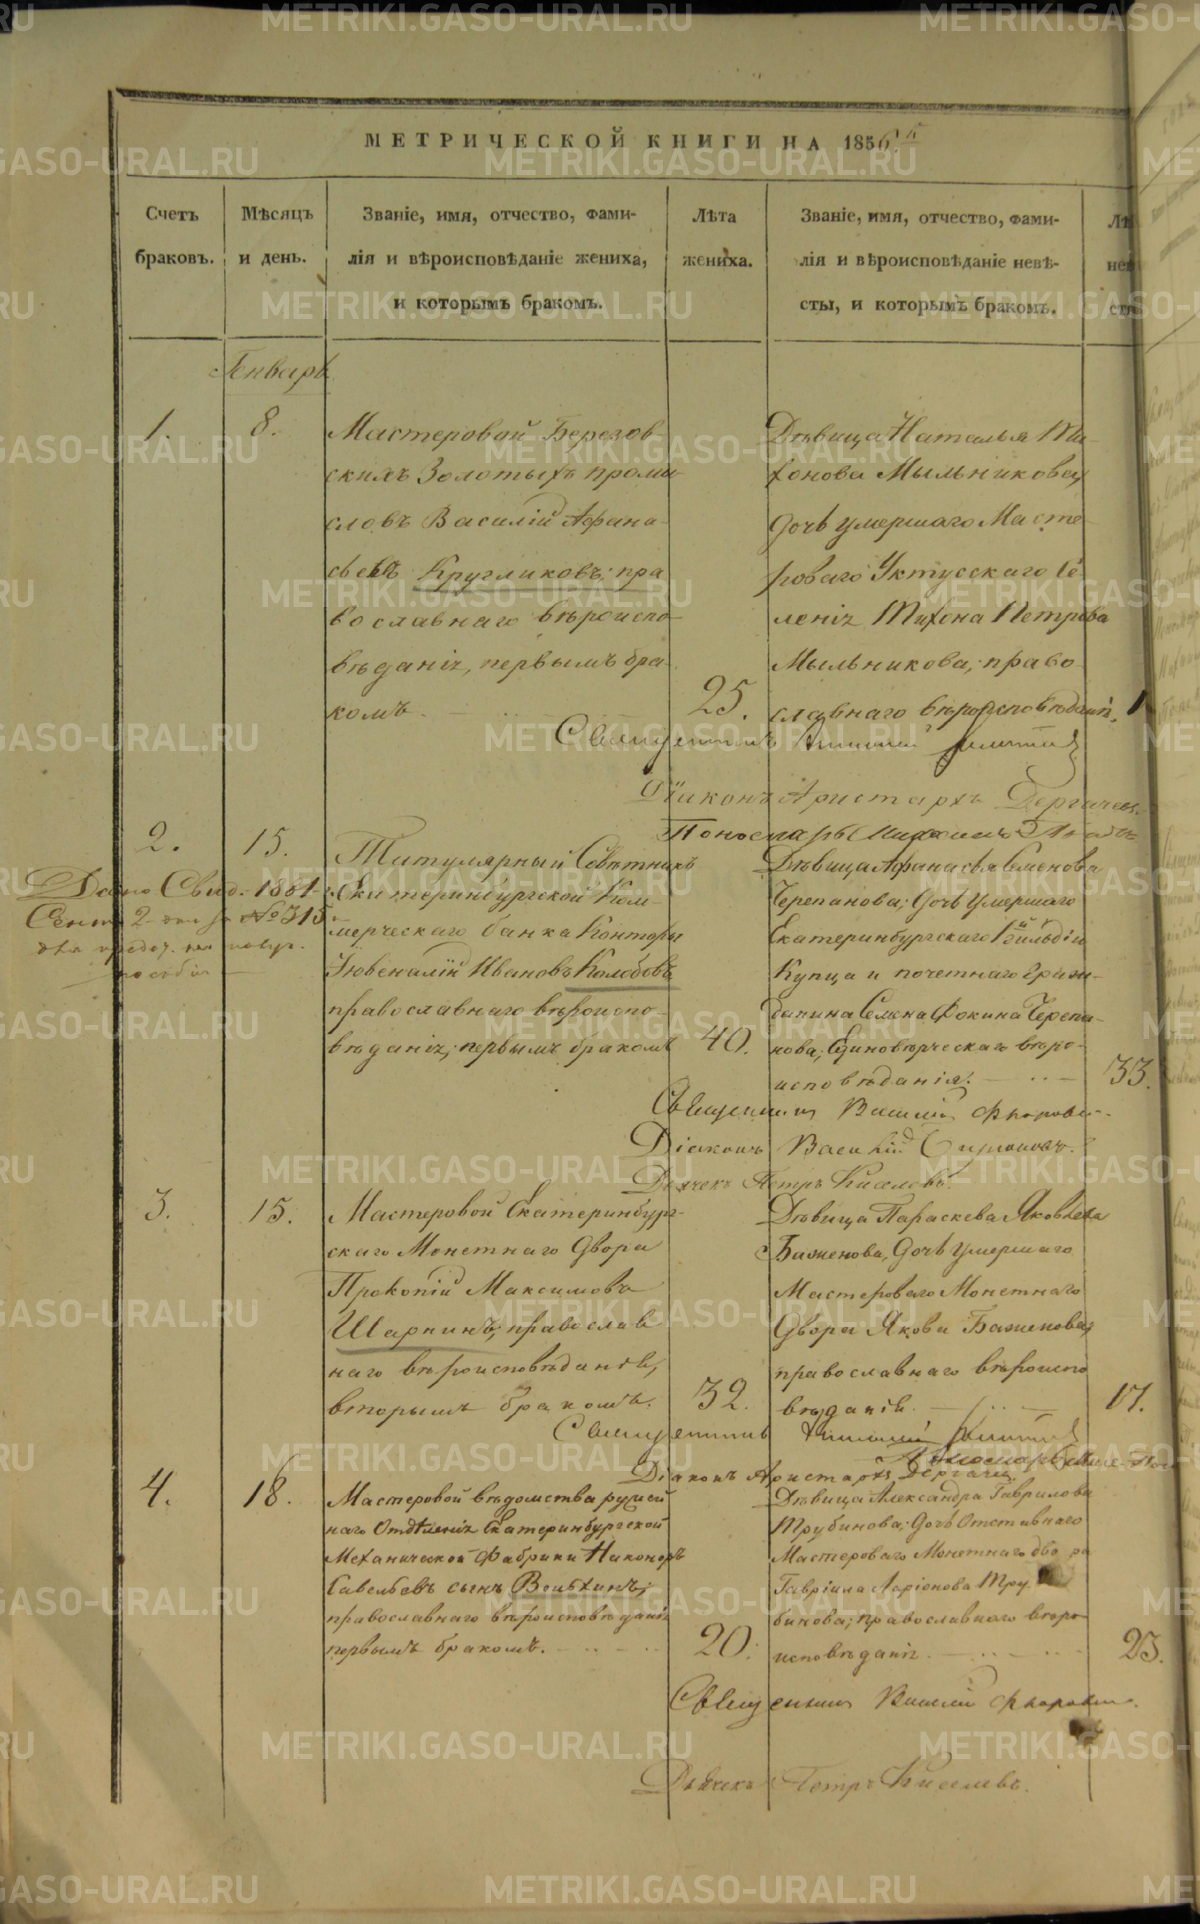 МЕТРИЧЕСКОЙ КНИГИ НА 1856й
Счетъ
браковъ.
Мѣсяцъ
и день.
Званіе, имя, отчество, фами-
лія и вѣроисповѣданіе жениха,
и которымъ бракомъ.
Лѣта
жениха.
Званіе, имя, отчество, фами-
лія и вѣроисповѣданіе невѣ-
сты, и которымъ бракомъ.
Генварь
1.
8.
Мастеровой Березов-
скихъ Золотыхъ промы
словъ Василій Афана-
сьевъ Кругликовъ; пра
вославнаго вѣроиспо-
вѣданія, первымъ бра-
комъ.
25.
Дѣвица Наталья Ти-
хонова Мыльникова,
дочь умершаго Масте-
роваго Уктусскаго Се-
ленія Тихона Петрова
Мыльникова; право-
славнаго вѣроисповѣданія.
Священникъ
Діаконъ Аристархъ Дергачевъ.
Пономарь
2.
15.
Дано Свид. 1881
Сент. 2 дня за № 315
Титулярный Совѣтникъ
Екатеринбургской Ком-
мерческаго банка Конторы
Ювеналій Ивановъ Колобовъ
православнаго вѣроиспо-
вѣданія; первымъ бракомъ
40.
Дѣвица Афанасья Семенова
Черепанова; дочь умершаго
Екатеринбургскаго 1й гильдіи
Купца и почетнаго Граж-
данина Семена Фокина Черепа-
нова; Единовѣрческаго вѣро-
исповѣданія.
33.
Священникъ Василій
Діаконъ Василій
Дьячекъ Петръ Киселевъ.
3.
15.
Мастеровой Екатеринбург-
скаго Монетнаго Двора
Прокопій Максимовъ
Шарнинъ; православ
наго вѣроисповѣданія,
вторымъ бракомъ.
32.
Дѣвица Параскева Яковлева
Баженова, дочь умершаго
Мастероваго Монетнаго
Двора Якова Баженова,
православнаго вѣроиспо
вѣданія.
17.
Священникъ
Пономарь
Діаконъ Аристархъ Дергачевъ
4.
18.
Мастеровой вѣдомства ружей
наго Отдѣленія Екатеринбургской
Механической Фабрики Никоноръ
Савельевъ сынъ
православнаго вѣроисповѣданія
первымъ бракомъ.
20.
Дѣвица Александра Гаврилова
Трубинова; дочь Отставнаго
Мастероваго Монетнаго двора
Гавріила Ларіонова Тру
бинова; православнаго вѣро-
исповѣданія.
23.
Священникъ Василій
Дьячекъ Петръ Киселевъ.
METRIKI.GASO-URAL.RU